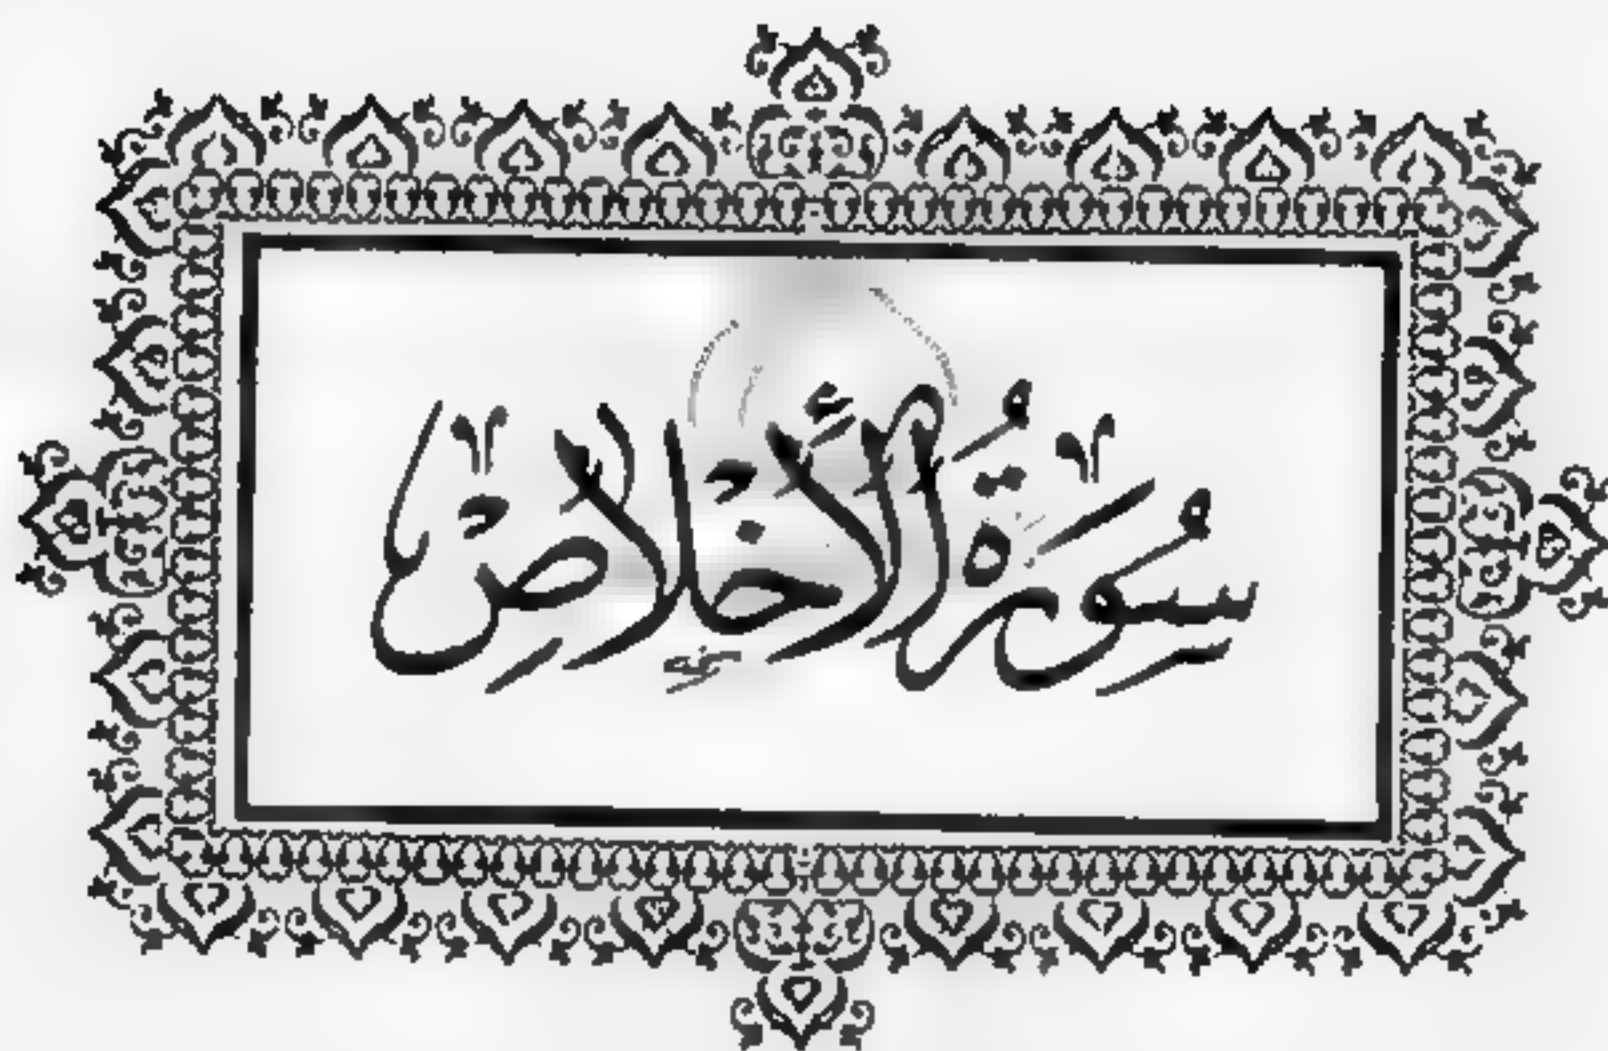 سُورَةُ الْأَخْلَاصِ